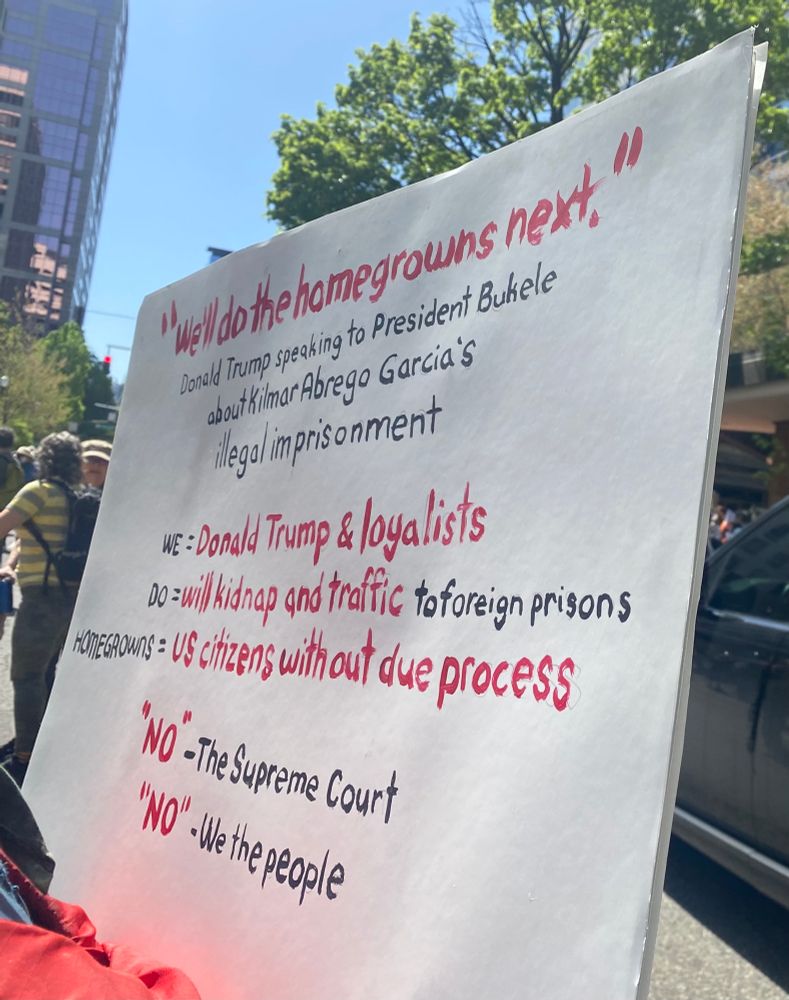 "We'll do the homegrowns next."
Donald Trump speaking to President Bukele
about Kilmar Abrego Garcia's
illegal imprisonment
WE = Donald Trump & loyalists
DO = will kidnap and traffic to foreign prisons
HOMEGROWNS = US citizens without due process
"NO" - The Supreme Court
"NO" - We the people